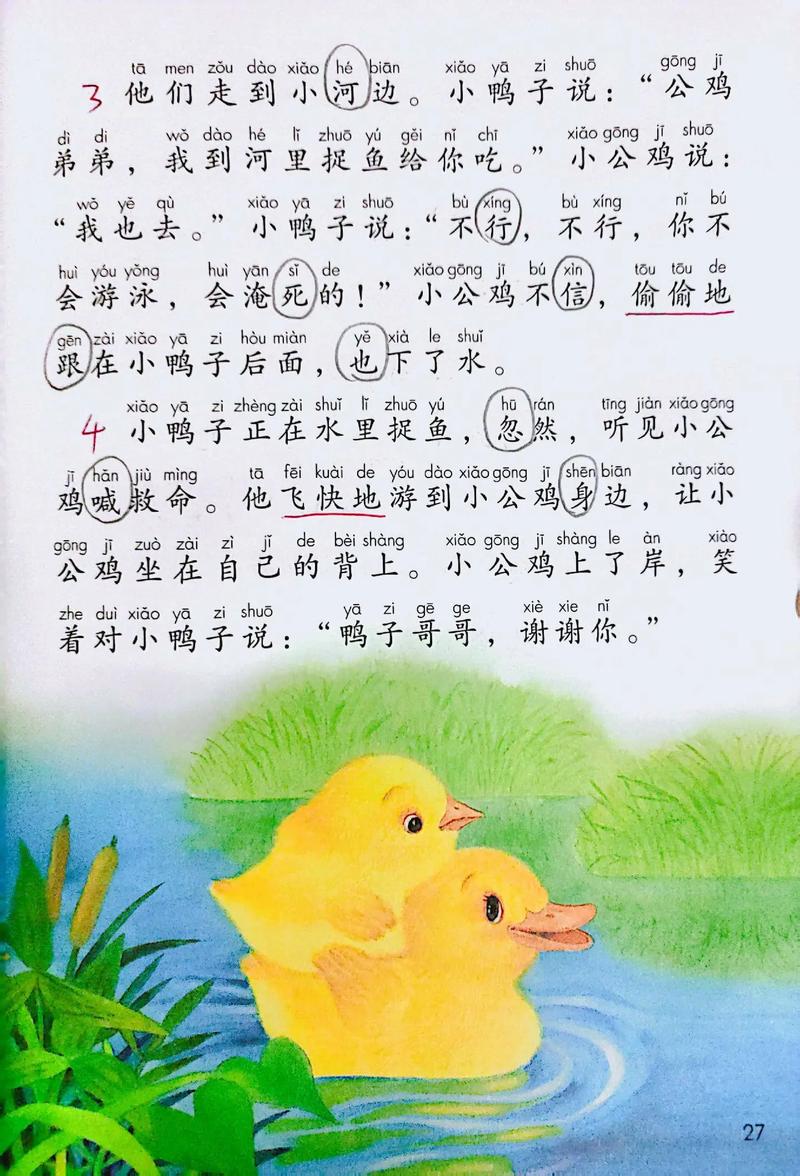 tā men zǒu dào xiǎo hé biān xiǎo yā zi shuō gōng jī
3 他们走到小河边。小鸭子说：“公鸡
dì di wǒ dào hé lǐ zhuō yú gěi nǐ chī xiǎo gōng jī shuō
弟弟，我到河里捉鱼给你吃。”小公鸡说：
wǒ yě qù xiǎo yā zi shuō bù xíng bù xíng nǐ bú
“我也去。”小鸭子说：“不行，不行，你不
huì yóu yǒng huì yān sǐ de xiǎo gōng jī bú xìn tōu tōu de
会游泳，会淹死的！”小公鸡不信，偷偷地
gēn zài xiǎo yā zi hòu miàn yě xià le shuǐ
跟在小鸭子后面，也下了水。
xiǎo yā zi zhèng zài shuǐ lǐ zhuō yú hū rán tīng jiàn xiǎo gōng
4 小鸭子正在水里捉鱼，忽然，听见小公
jī hǎn jiù mìng tā fēi kuài de yóu dào xiǎo gōng jī shēn biān ràng xiǎo
鸡喊救命。他飞快地游到小公鸡身边，让小
gōng jī zuò zài zì jǐ de bèi shàng xiǎo gōng jī shàng le àn xiào
公鸡坐在自己的背上。小公鸡上了岸，笑
zhe duì xiǎo yā zi shuō yā zi gē ge xiè xie nǐ
着对小鸭子说：“鸭子哥哥，谢谢你。”
27